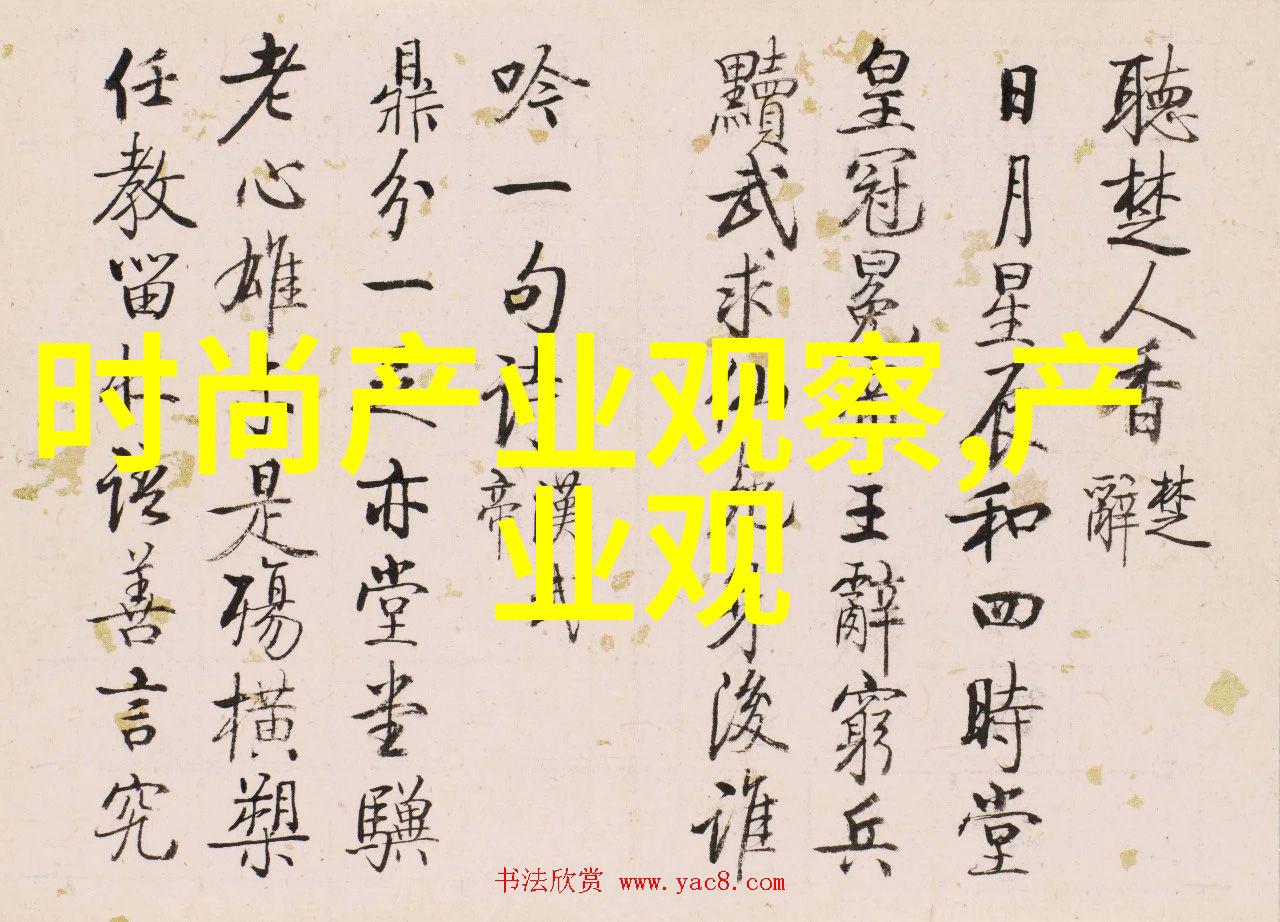 时尚产业观察,产
业观
聽楚人香
楚辭
日月星辰和四時堂
皇冠冕 王辭窮兵
黷武求仙 身後誰
吟一句詩
漢武帝
鼎分一 亦堂堂驥
老心雄 是殤橫槊
任教留 語善言究
书法欣赏 www.yac8.com